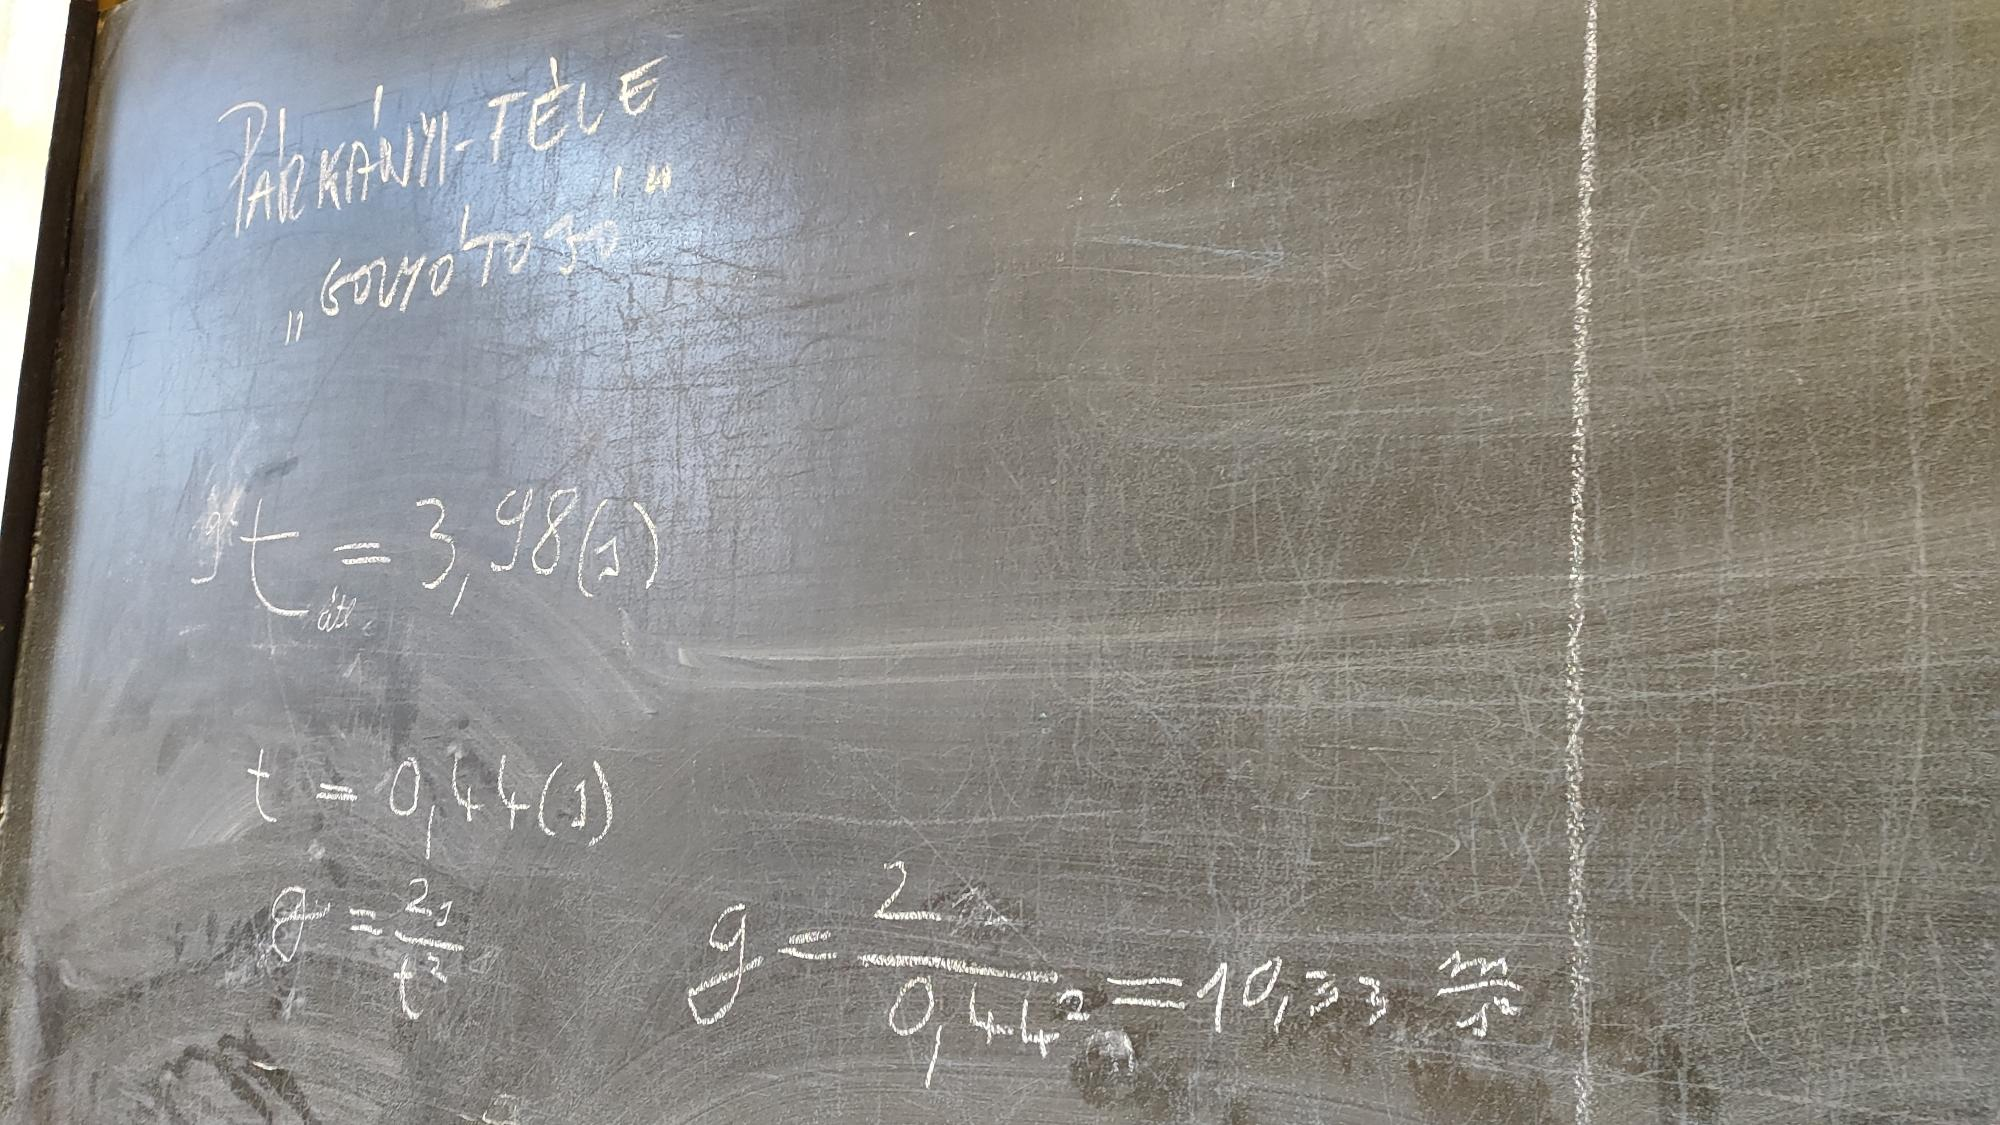 PÁRKÁNYI-FÉLE
„GOLYÓTOJÓ"
9t = 3,98(s)
t = 0,44(s)
g = 2s/t²
g = 2/0,44² = 10,33 m/s²